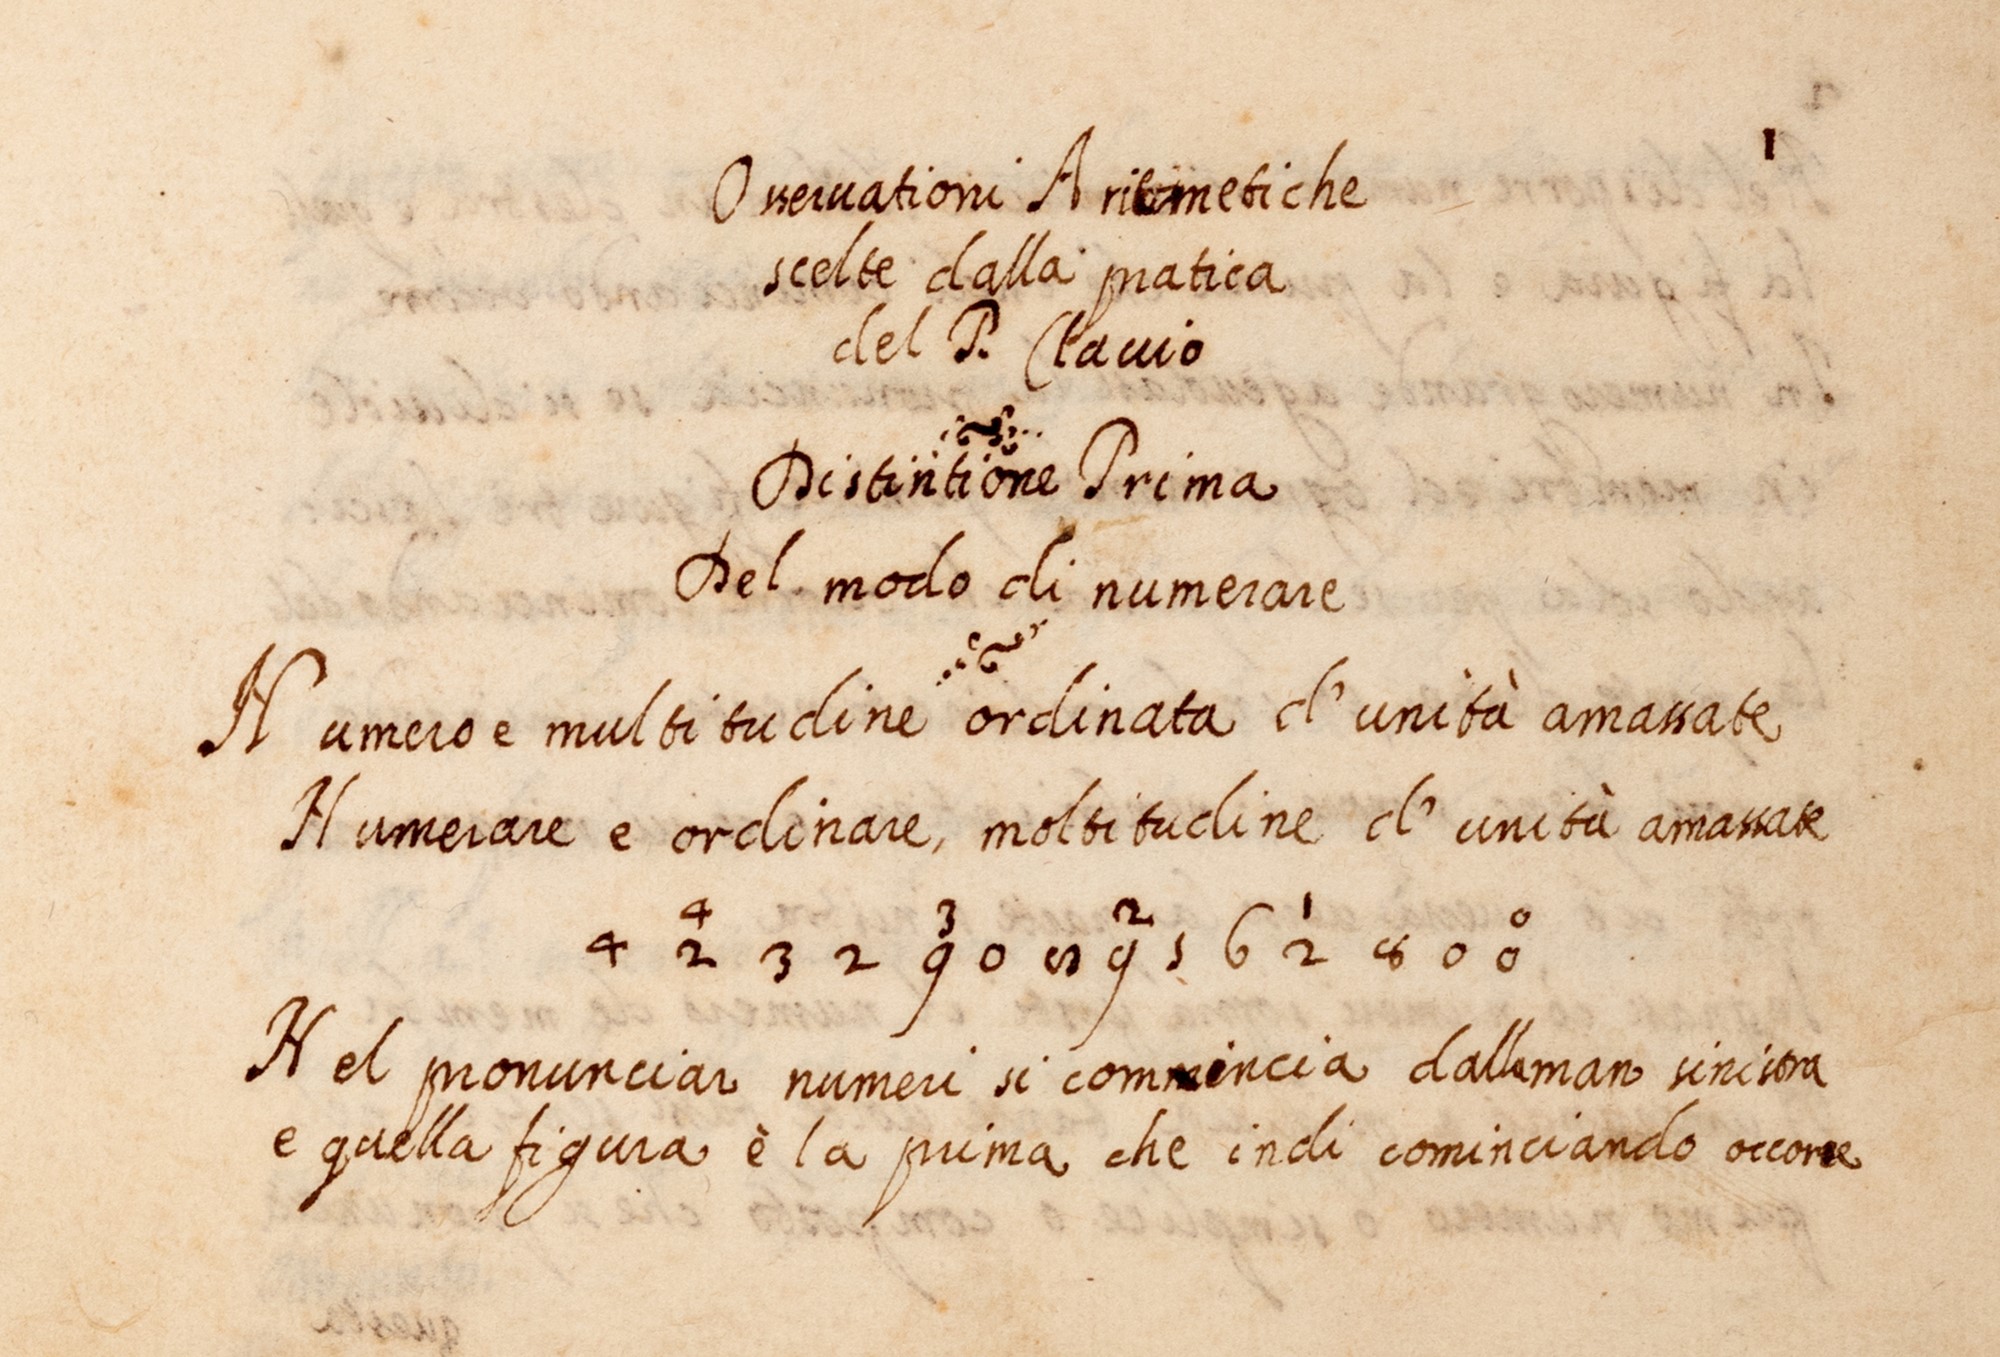 1
Osservationi Aritmetiche
scelte dalla pratica
del P. Clavio
Distintione Prima
Del modo di numerare
Numero e multitudine ordinata d'unità amassate
Numerare e ordinare, moltitudine d'unità amassate
4 3 2 1 0
4 2 3 2 9 0 8 9 5 6 2 8 0 0
Nel pronunciar numeri si commincia dalla man sinistra
e quella figura è la prima che indi cominciando occorre
questa